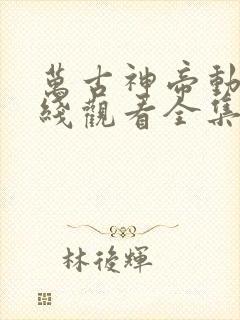 萬古神帝動
綫觀看全集
林後輝